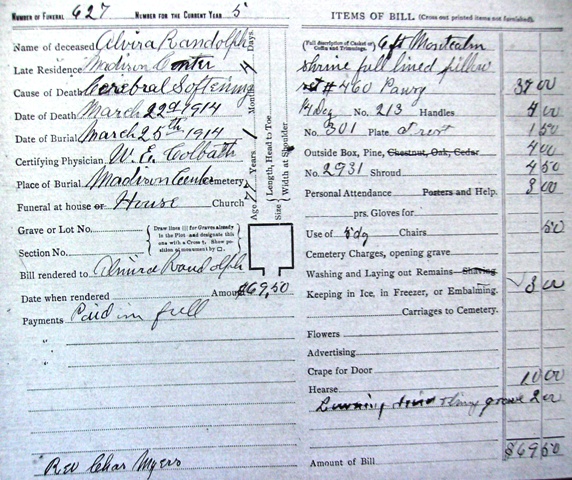 NUMBER OF FUNERAL 627 NUMBER FOR THE CURRENT YEAR 5
Name of deceased Alvira Randolph
Late Residence Madison Center
Cause of Death Cerebral Softening
Date of Death March 22d 1914
Date of Burial March 25th 1914
Certifying Physician W. E. Colbath
Place of Burial Madison Center Cemetery
Funeral at house or House Church
Age 77 Years 1 Months 4 Days
Size { Length, Head to Toe
Width at Shoulder
Grave or Lot No.
Section No.
{ Draw lines ||| for Graves already
in the Plot and designate this
one with a Cross †. Show po-
sition of monument by □. }
Bill rendered to Almira Randolph
Date when rendered Amount $69,50
Payments Paid in full
"
"
Rev Chas Myers
ITEMS OF BILL (Cross out printed items not furnished).
(Full description of Casket or
Coffin and Trimmings. 6 ft Montcalm
Shrine full lined pillow
set # 460 37 00
No. 213 Handles 4 00
No. 301 Plate At rest 1 50
Outside Box, Pine, Chestnut, Oak, Cedar 4 00
No. 2931 Shroud 4 50
Personal Attendance Porters and Help. 3 00
prs. Gloves for
Use of 5 dg Chairs 50
Cemetery Charges, opening grave
Washing and Laying out Remains Shaving
Keeping in Ice, in Freezer, or Embalming. 3 00
Carriages to Cemetery.
Flowers
Advertising
Crape for Door
Hearse 10 00
grave 2 00
Amount of Bill $69 50